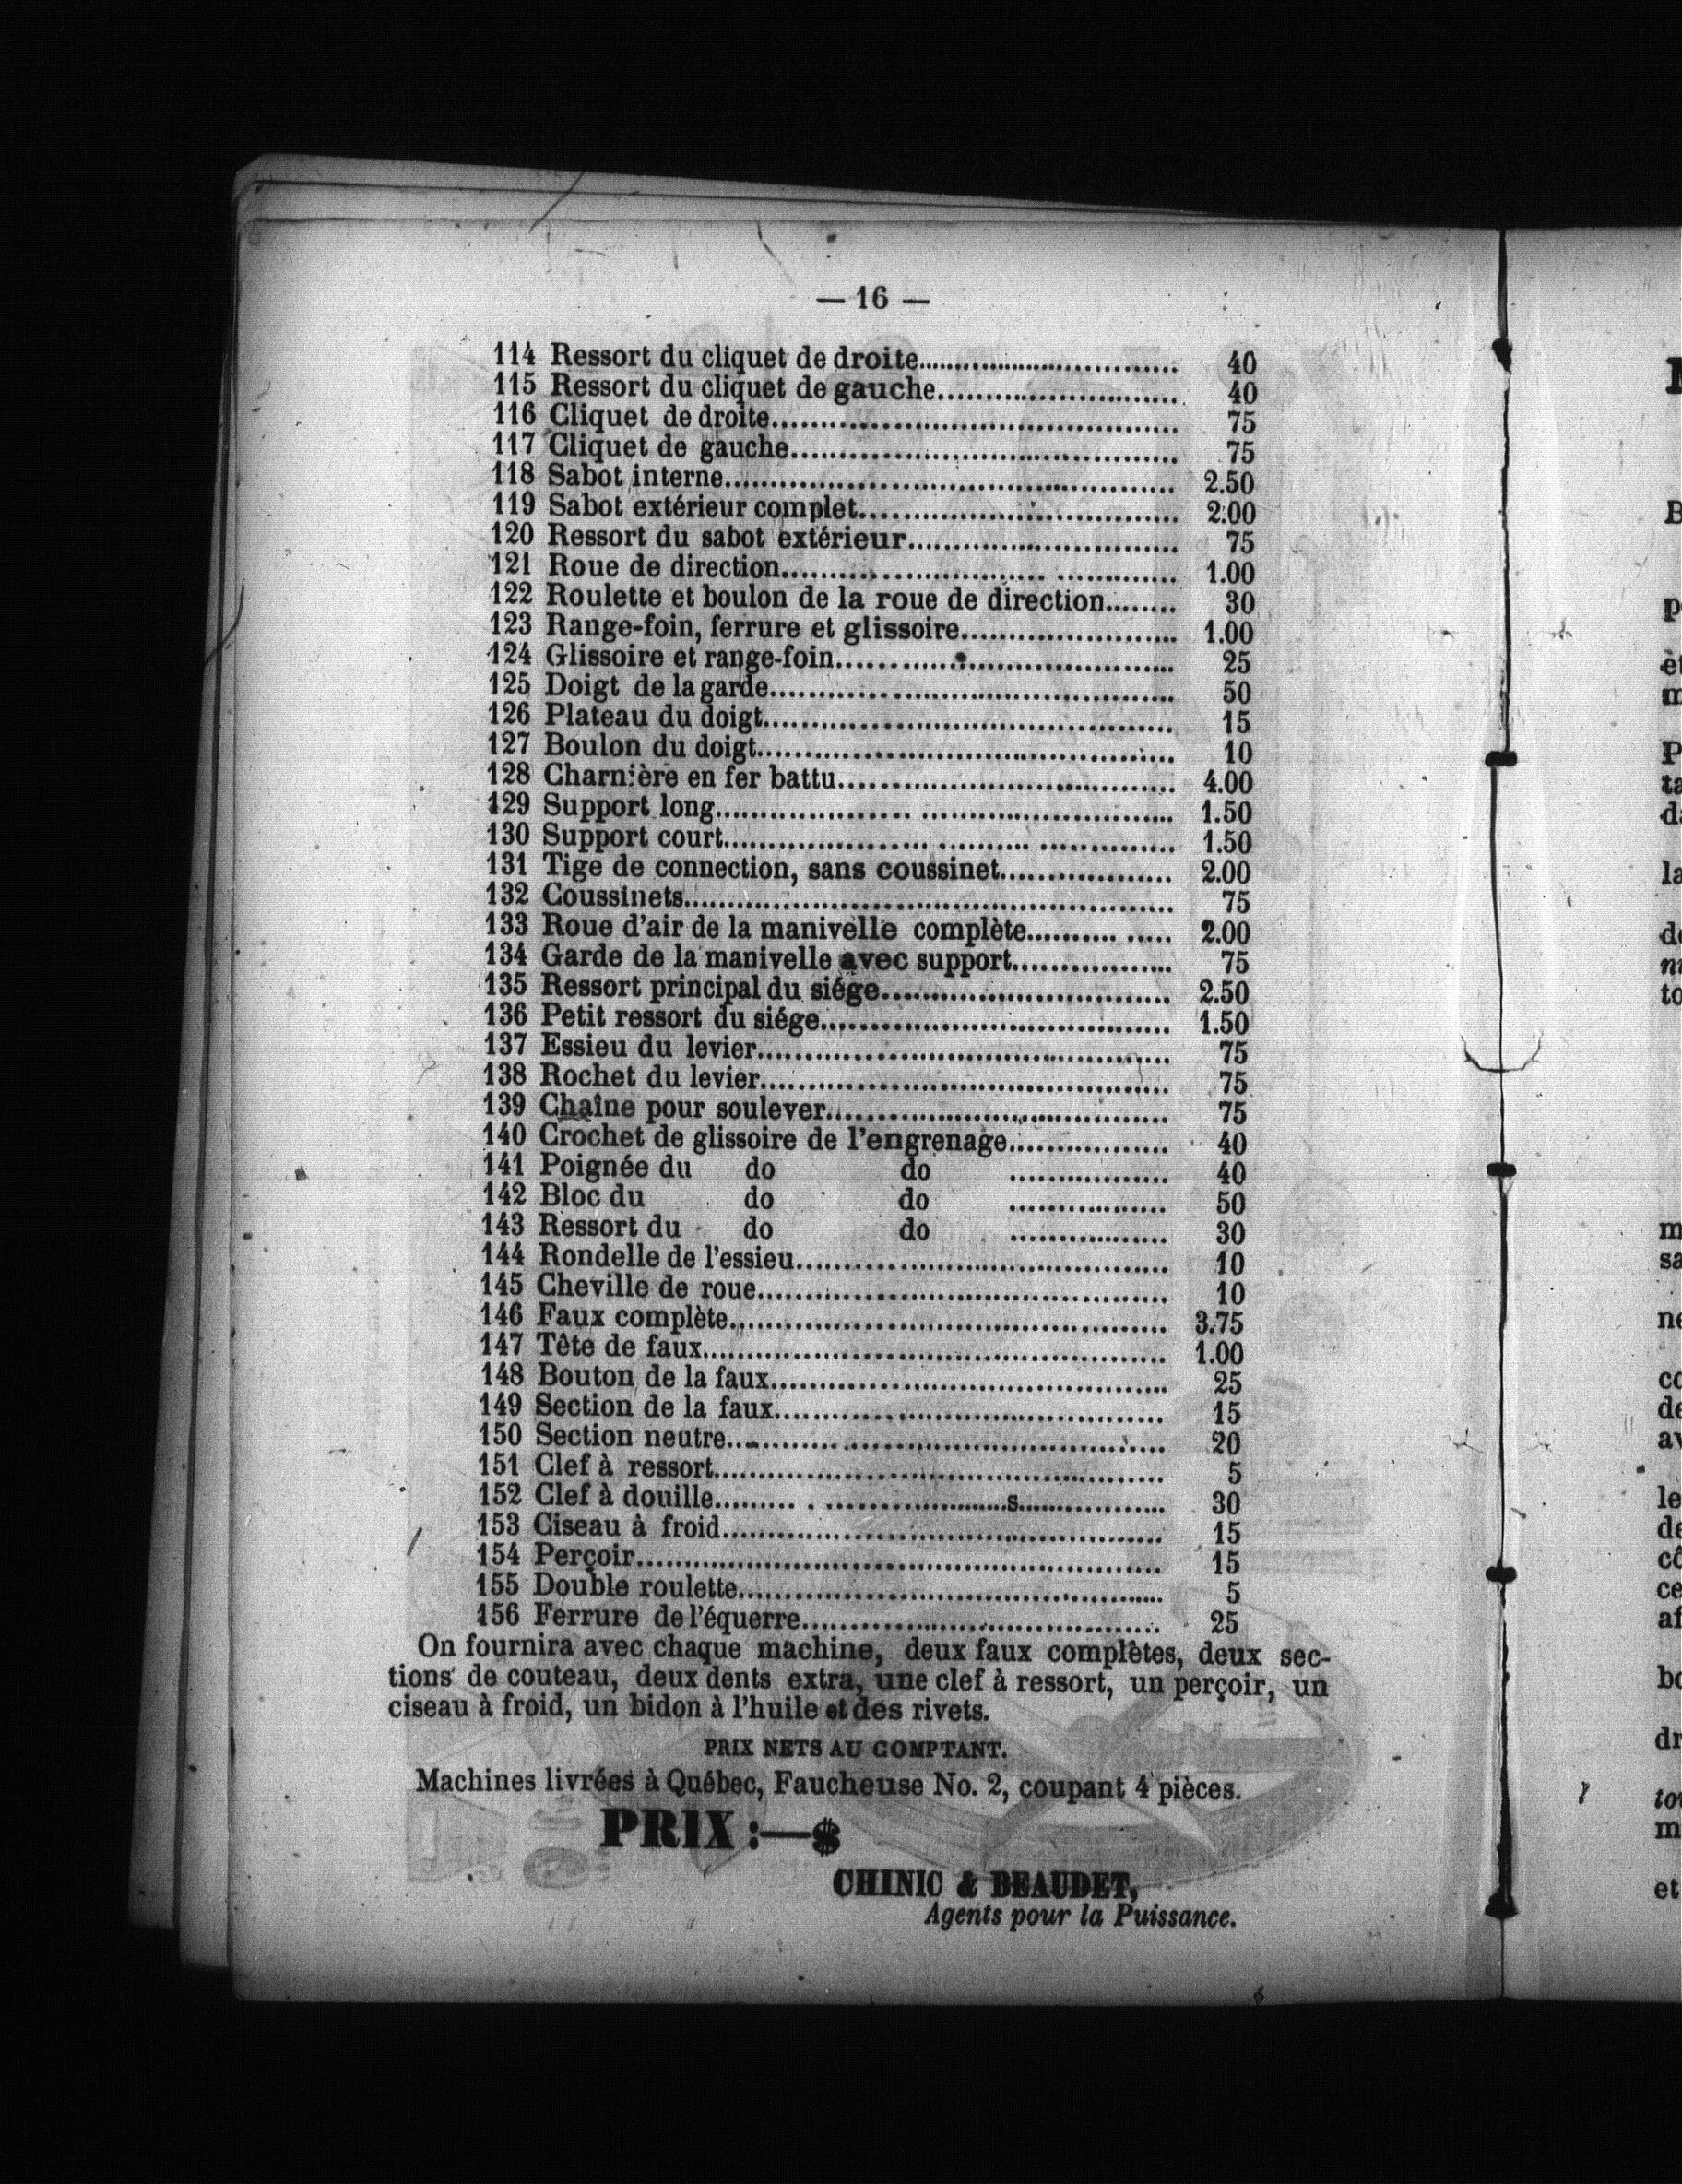 — 16 —
114 Ressort du cliquet de droite........................... 40
115 Ressort du cliquet de gauche........................... 40
116 Cliquet de droite........................... 75
117 Cliquet de gauche........................... 75
118 Sabot interne........................... 2.50
119 Sabot extérieur complet........................... 2.00
120 Ressort du sabot extérieur........................... 75
121 Roue de direction........................... 1.00
122 Roulette et boulon de la roue de direction........ 30
123 Range-foin, ferrure et glissoire........................ 1.00
124 Glissoire et range-foin........................... 25
125 Doigt de la garde........................... 50
126 Plateau du doigt........................... 15
127 Boulon du doigt........................... 10
128 Charnière en fer battu........................... 4.00
129 Support long........................... 1.50
130 Support court........................... 1.50
131 Tige de connection, sans coussinet.................. 2.00
132 Coussinets........................... 75
133 Roue d'air de la manivelle complète.......... ..... 2.00
134 Garde de la manivelle avec support................. 75
135 Ressort principal du siége........................... 2.50
136 Petit ressort du siége........................... 1.50
137 Essieu du levier........................... 75
138 Rochet du levier........................... 75
139 Chaîne pour soulever........................... 75
140 Crochet de glissoire de l'engrenage................. 40
141 Poignée du do do ................. 40
142 Bloc du do do ................. 50
143 Ressort du do do ................. 30
144 Rondelle de l'essieu........................... 10
145 Cheville de roue........................... 10
146 Faux complète........................... 3.75
147 Tête de faux........................... 1.00
148 Bouton de la faux........................... 25
149 Section de la faux........................... 15
150 Section neutre........................... 20
151 Clef à ressort........................... 5
152 Clef à douille......... . ....................s................ 30
153 Ciseau à froid........................... 15
154 Perçoir........................... 15
155 Double roulette........................... 5
156 Ferrure de l'équerre........................... 25
On fournira avec chaque machine, deux faux complètes, deux sec-
tions de couteau, deux dents extra, une clef à ressort, un perçoir, un
ciseau à froid, un bidon à l'huile et des rivets.
PRIX NETS AU COMPTANT.
Machines livrées à Québec, Faucheuse No. 2, coupant 4 pièces.
PRIX :—$
CHINIC & BEAUDET,
Agents pour la Puissance.